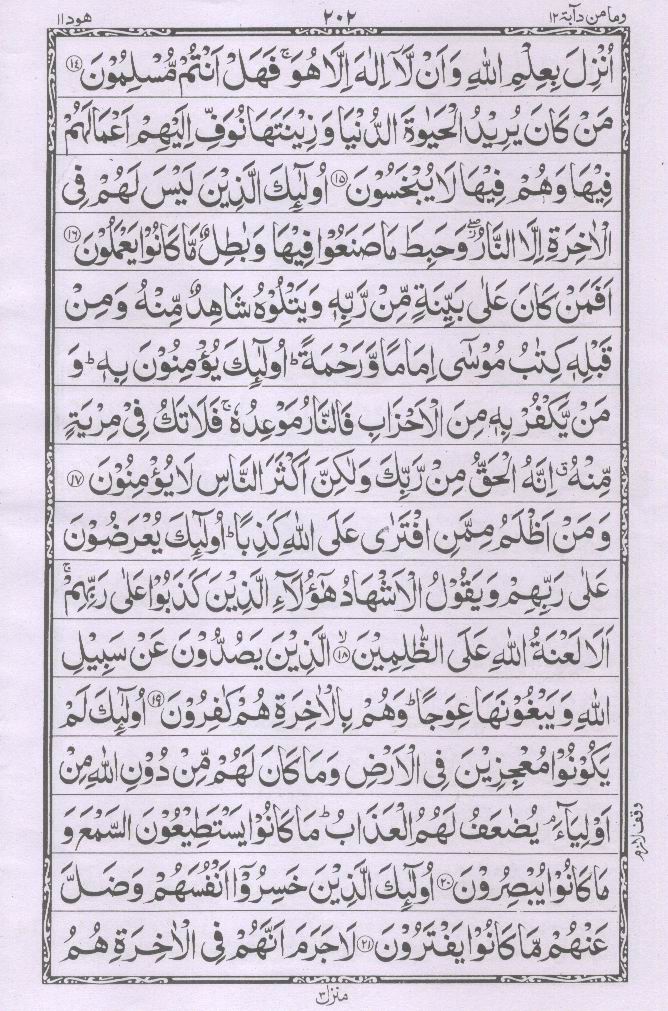 وما من دآبة ١٢ ٢٠٢ هود ١١
اُنْزِلَ بِعِلْمِ اللّٰهِ وَاَنْ لَّاۤ اِلٰهَ اِلَّا هُوَ ۚ فَهَلْ اَنْتُمْ مُّسْلِمُوْنَ ﴿١٤﴾
مَنْ كَانَ يُرِيْدُ الْحَيٰوةَ الدُّنْيَا وَزِيْنَتَهَا نُوَفِّ اِلَيْهِمْ اَعْمَالَهُمْ
فِيْهَا وَهُمْ فِيْهَا لَا يُبْخَسُوْنَ ﴿١٥﴾ اُولٰٓئِكَ الَّذِيْنَ لَيْسَ لَهُمْ فِى
الْاٰخِرَةِ اِلَّا النَّارُ ۖ وَحَبِطَ مَا صَنَعُوْا فِيْهَا وَبٰطِلٌ مَّا كَانُوْا يَعْمَلُوْنَ ﴿١٦﴾
اَفَمَنْ كَانَ عَلٰى بَيِّنَةٍ مِّنْ رَّبِّهٖ وَيَتْلُوْهُ شَاهِدٌ مِّنْهُ وَمِنْ
قَبْلِهٖ كِتٰبُ مُوْسٰٓى اِمَامًا وَّرَحْمَةً ؕ اُولٰٓئِكَ يُؤْمِنُوْنَ بِهٖ ؕ وَ
مَنْ يَّكْفُرْ بِهٖ مِنَ الْاَحْزَابِ فَالنَّارُ مَوْعِدُهٗ ۚ فَلَا تَكُ فِىْ مِرْيَةٍ
مِّنْهُ ۗ اِنَّهُ الْحَقُّ مِنْ رَّبِّكَ وَلٰكِنَّ اَكْثَرَ النَّاسِ لَا يُؤْمِنُوْنَ ﴿١٧﴾
وَمَنْ اَظْلَمُ مِمَّنِ افْتَرٰى عَلَى اللّٰهِ كَذِبًا ؕ اُولٰٓئِكَ يُعْرَضُوْنَ
عَلٰى رَبِّهِمْ وَيَقُوْلُ الْاَشْهَادُ هٰٓؤُلَآءِ الَّذِيْنَ كَذَبُوْا عَلٰى رَبِّهِمْ ۚ
اَلَا لَعْنَةُ اللّٰهِ عَلَى الظّٰلِمِيْنَ ۙ﴿١٨﴾ الَّذِيْنَ يَصُدُّوْنَ عَنْ سَبِيْلِ
اللّٰهِ وَيَبْغُوْنَهَا عِوَجًا ؕ وَهُمْ بِالْاٰخِرَةِ هُمْ كٰفِرُوْنَ ﴿١٩﴾ اُولٰٓئِكَ لَمْ
يَكُوْنُوْا مُعْجِزِيْنَ فِى الْاَرْضِ وَمَا كَانَ لَهُمْ مِّنْ دُوْنِ اللّٰهِ مِنْ
اَوْلِيَآءَ ۘ يُضٰعَفُ لَهُمُ الْعَذَابُ ؕ مَا كَانُوْا يَسْتَطِيْعُوْنَ السَّمْعَ وَ
مَا كَانُوْا يُبْصِرُوْنَ ﴿٢٠﴾ اُولٰٓئِكَ الَّذِيْنَ خَسِرُوْۤا اَنْفُسَهُمْ وَضَلَّ
عَنْهُمْ مَّا كَانُوْا يَفْتَرُوْنَ ﴿٢١﴾ لَا جَرَمَ اَنَّهُمْ فِى الْاٰخِرَةِ هُمُ
وقف لازم
منزل ٣